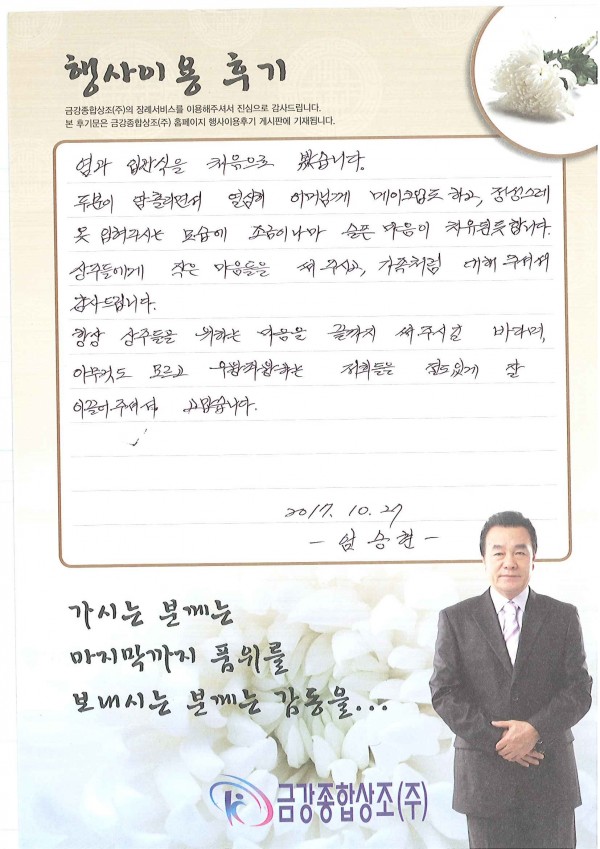 행사이용 후기
금강종합상조(주)의 장례서비스를 이용해주셔서 진심으로 감사드립니다.
본 후기문은 금강종합상조(주) 홈페이지 행사이용후기 게시판에 기재됩니다.
염과 입관식을 처음으로 봤습니다.
두분이 땀흘리면서 열심히 어머님께 메이크업도 하고, 정성스레
옷 입혀주시는 모습에 조금이나마 슬픈 마음이 치유된듯합니다.
상주들에게 작은 마음들을 써 주시고, 가족처럼 대해 주셔서
감사드립니다.
항상 상주들을 위하는 마음을 끝까지 써주시길 바라며,
아무것도 모르고 우왕좌왕하는 저희들을 절도있게 잘
이끌어주셔서 고맙습니다.
2017. 10. 27
- 승현 -
가시는 분께는
마지막까지 품위를
보내시는 분께는 감동을...
금강종합상조(주)